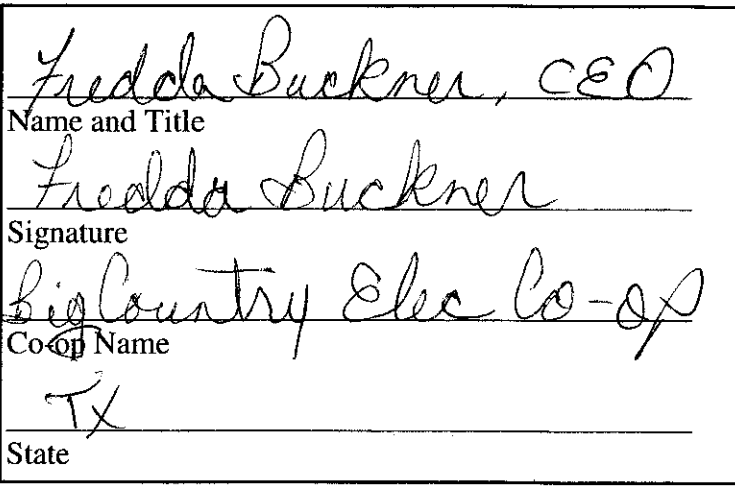 Fredda Buckner, CEO
Name and Title
Fredda Buckner
Signature
Big Country Elec Co-op
Co-op Name
TX
State